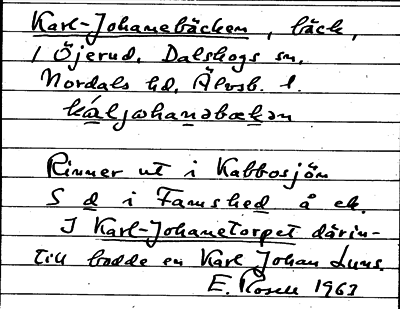 Karl-Johanebäcken, bäck,
i Öjerud, Dalskogs sn,
Nordals hd, Älvsb. l.
káljωhanəbækən
Rinner ut i Kabbosjön
S d i Famshed å ek.
I Karl-Johanetorpet därin-
till bodde en Karl Johan Luns.
E. Rosell 1963